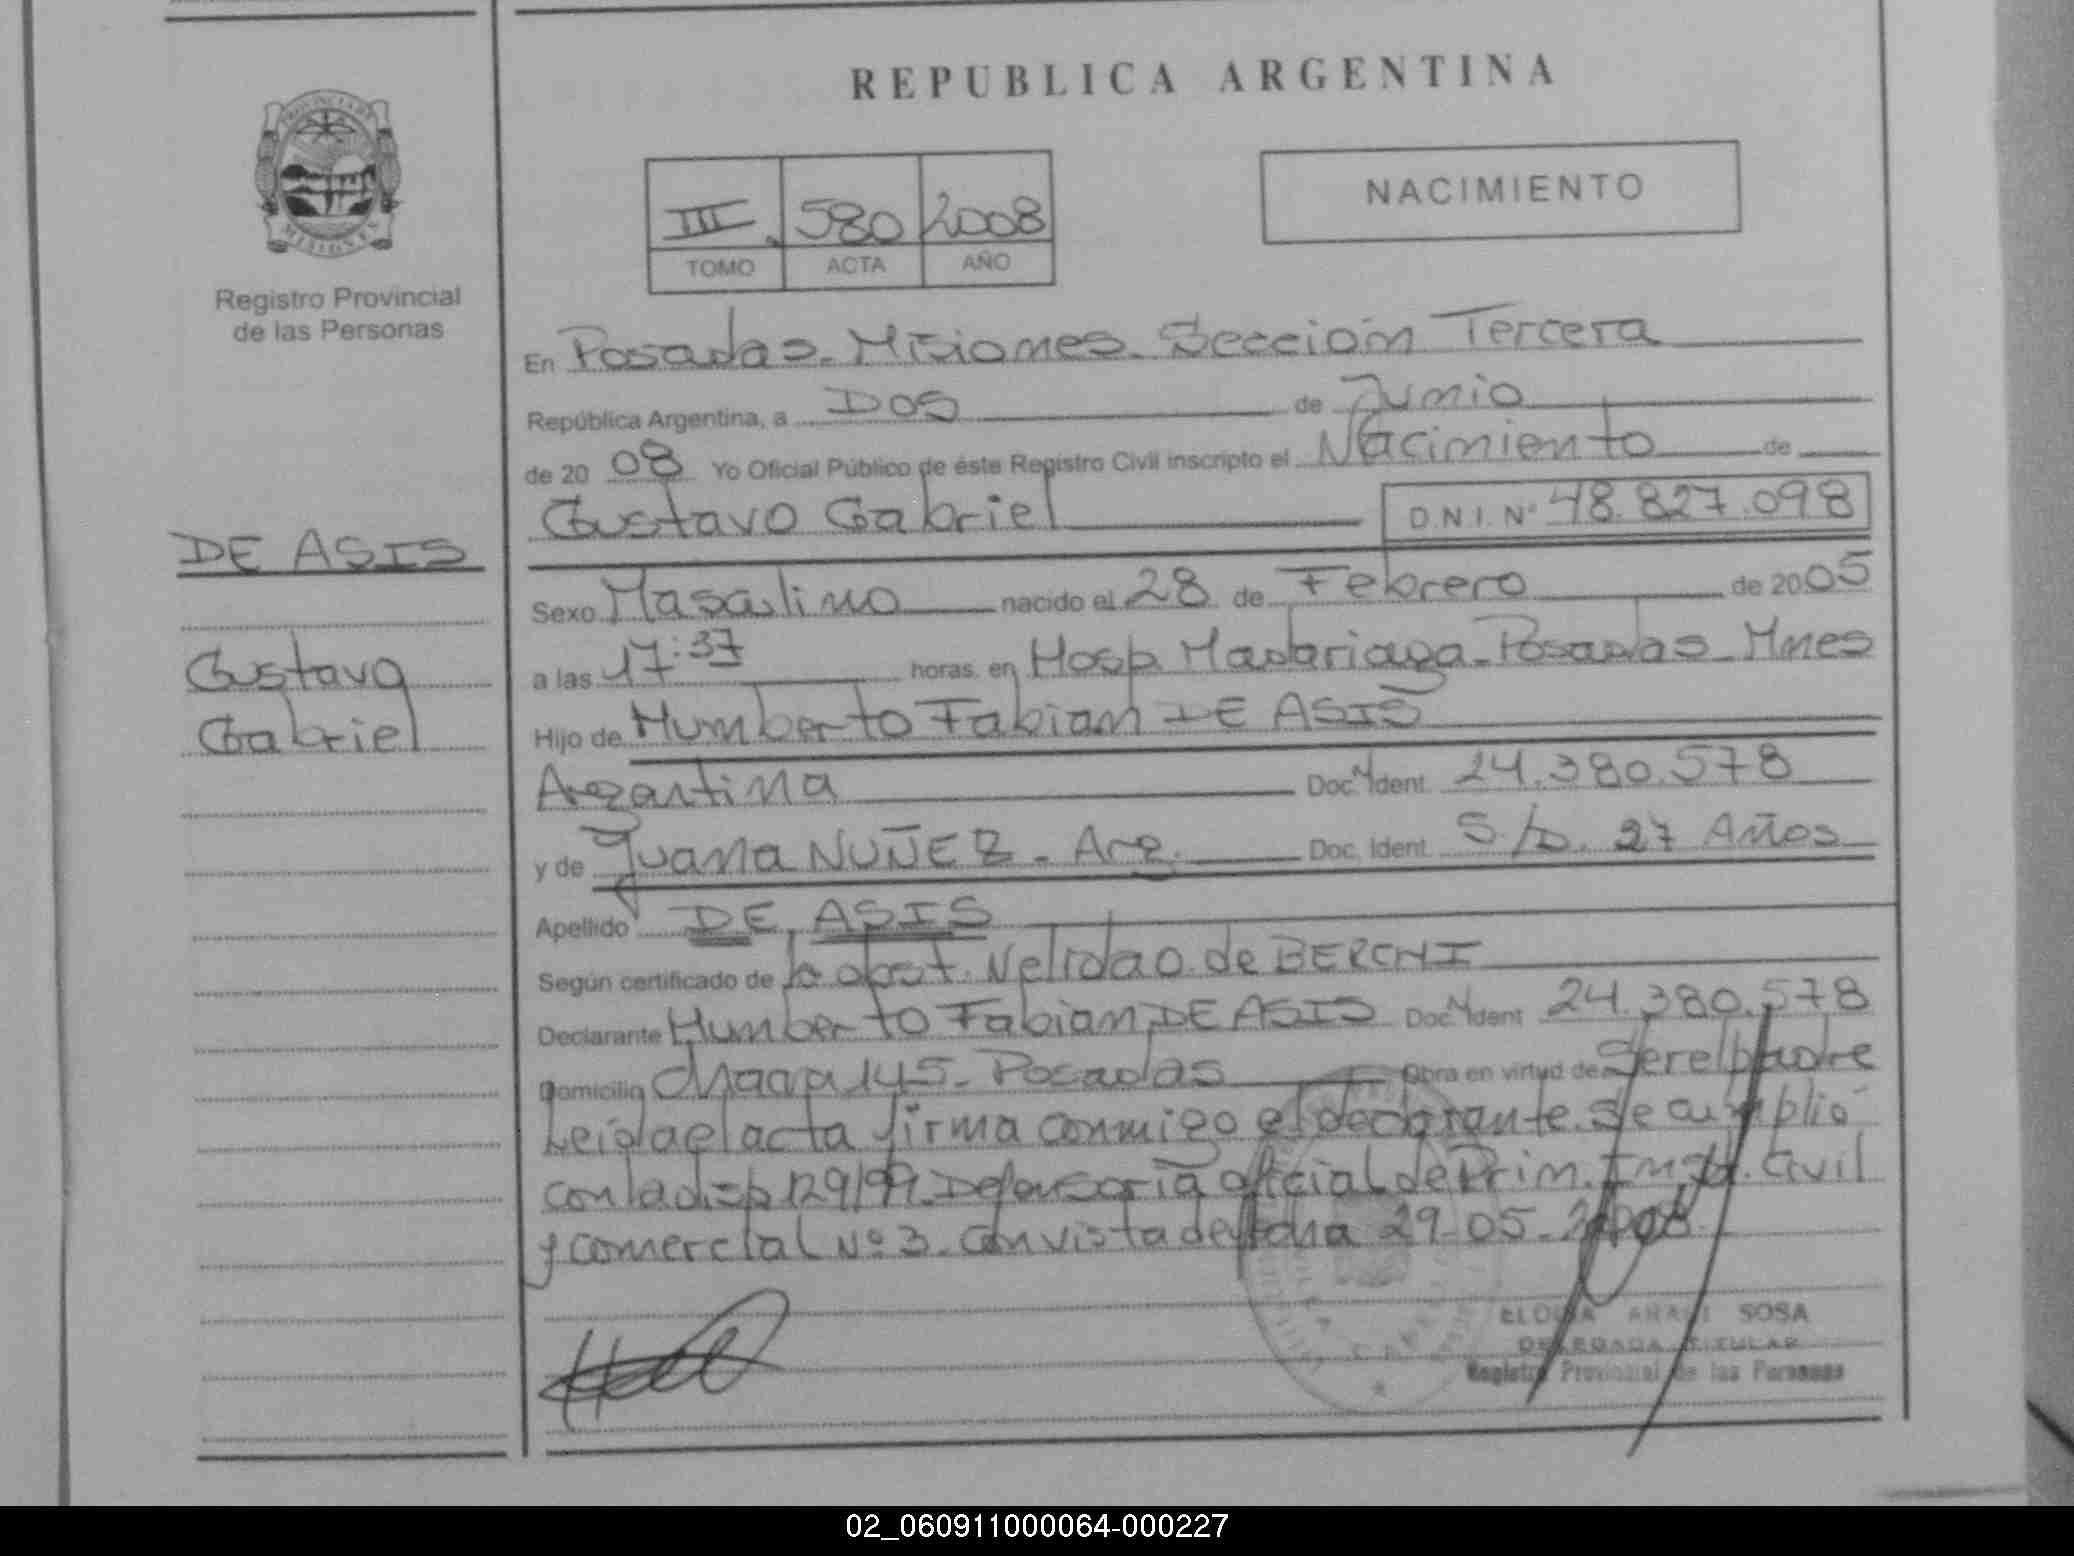 REPUBLICA ARGENTINA
PROVINCIA DE
MISIONES
Registro Provincial
de las Personas
III. 580 2008
TOMO ACTA AÑO
NACIMIENTO
En Posadas. Misiones. Sección Tercera
República Argentina, a Dos de Junio
de 20 08 Yo Oficial Público de éste Registro Civil inscripto el Nacimiento de
Gustavo Gabriel D.N.I. Nº 48.827.098
DE ASIS
Gustavo
Gabriel
Sexo Masculino nacido el 28 de Febrero de 20 05
a las 17:37 horas. en Hosp. Madariaga. Posadas. Mnes
Hijo de Humberto Fabian DE ASIS
Argentina Doc. Ident. 24.380.578
y de Juana NUÑEZ. Arg. Doc. Ident. S/D. 27 Años
Apellido DE ASIS
Según certificado de la obst. Nelida O. de BERCHI
Declarante Humberto Fabian DE ASIS Doc. Ident 24.380.578
Domicilio Chacra 145. Posadas Obra en virtud de Ser el padre
Leida el acta firma conmigo el declarante. Se cumplió
con la disp 129/99. Defensoria oficial de Prim. Inst. Civil
y comercial Nº 3. Con vista de fecha 29-05-2008.
SOSA
DELEGADA TITULAR
Registro Provincial de las Personas
02_060911000064-000227